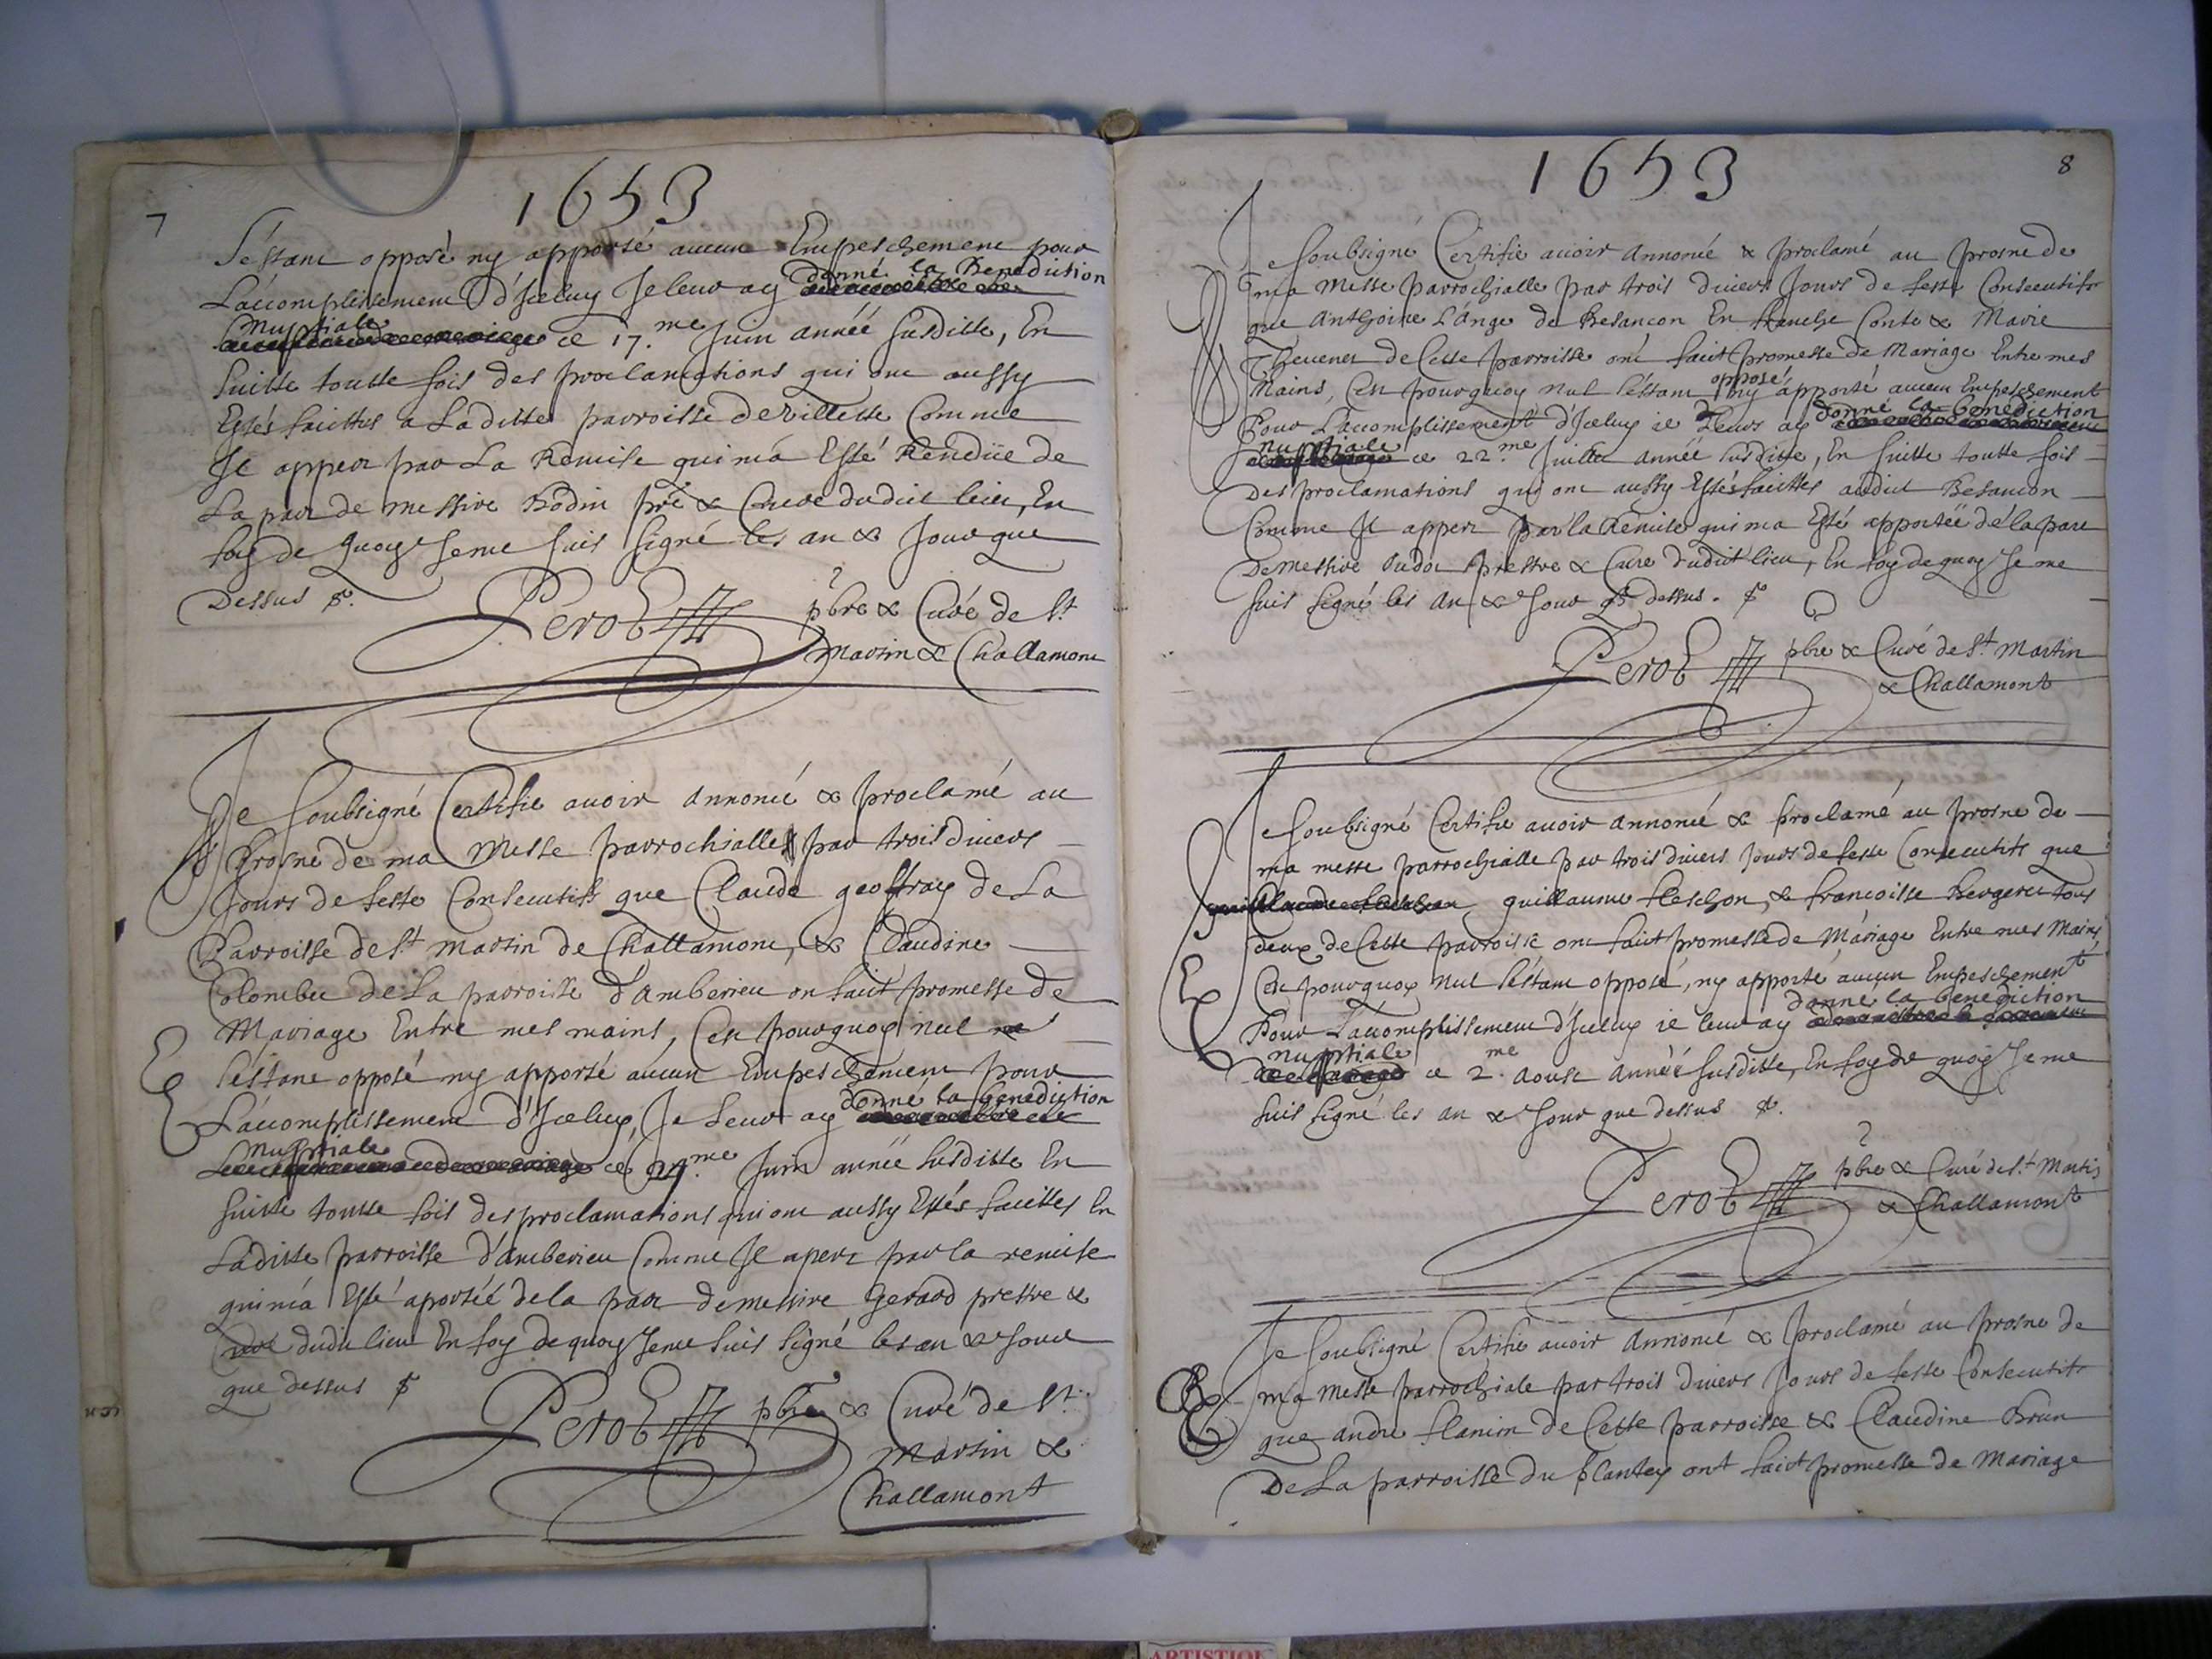 7
1653
S'estant opposé ny apporté aucun Empeschement pour
L'accomplissement d'Jceluy Je leur ay donné la Benediction
Nuptiale ce 17.me Juin année susditte, En
suitte toutte fois des proclamations qui ont aussy
Estés faittes a Laditte parroisse de Villette Comme
Jl appert par La Remise qui m'a Esté Rendüe de
La part de messire Bodin pre & Curé dudict lieu, En
foy de quoy Je me suis signé les an & Jour que
Dessus
Perot pbre & Curé de St
Martin & Challamont
Je soubsigné Certifie auoir annoncé & proclamé au
Prosne de ma Messe parrochialle par trois diuers
Jours de feste Consecutifs que Claude geoffray de La
Parroisse de St martin de Challamont, & Claudine
Colombet de La parroisse d'amberieu on faict promesse de
Mariage Entre mes mains, C'est pourquoy nul
s'estant opposé ny apporté aucun Empeschement pour
L'accomplissement d'Jceluy, Je Leur ay donné la benediction
Nuptiale ce me Juin année susditte En
suitte toutte fois des proclamations qui ont aussy Estés faittes En
Laditte parroisse d'amberieu Comme Jl apert par la remise
qui m'a Esté aportéé de la part de messire Gerard prestre &
Curé dudit lieu En foy de quoy Je me suis signé les an & Jour
que dessus
Perot pbre & Curé de St
Martin &
Challamont
1653
8
Je soubsigné Certifie auoir annoncé & proclamé au prosne de
ma Messe parrochialle par trois diuers Jours de feste Consecutifs
que Anthoine L'ange de Besancon En franche Conte & Marie
Theuenet de Cette parroisse ont faict promesse de Mariage Entre mes
Mains, C'est pourquoy nul s'estant opposé ny apporté aucun Empeschement
Pour L'accomplissement d'Jceluy ie Leurs ay donné la benediction
nuptiale ce 22.me Juillet année susditte, En suitte toutte fois
Des proclamations qui ont aussy Estés faittes audict Besancon
Comme Jl appert par la Remise qui ma Esté apportéé de la part
De Messire prestre & Curé dudict lieu, En foy de quoy Je me
suis signé les An & Jour que dessus.
Perot pbre & Curé de St Martin
& Challamont
Je soubsigné Certifie auoir annoncé & proclamé au prosne de
ma messe parrochialle par trois diuers Jours de feste Consecutifs que
guillaume fleschon, & francoise Bergeret tous
deux de Cette parroisse ont faict promesse de Mariage Entre mes Mains
C'est pourquoy Nul s'estant opposé, ny apporté aucun Empeschement
Pour L'accomplissement d'Jceluy ie leur ay donné la benediction
nuptiale ce 2.me Aoust année susditte, En foy de quoy Je me
suis signé les an & Jour que dessus
Perot pbre & Curé de St Martin
& Challamont
Je soubsigné Certifie auoir annoncé & proclamé au prosne de
ma Messe parrochiale par trois diuers Jours de feste Consecutifs
que andré flamin de Cette parroisse & Claudine Brun
De La parroisse du plantey ont faict promesse de Mariage
ARTISTIQUE